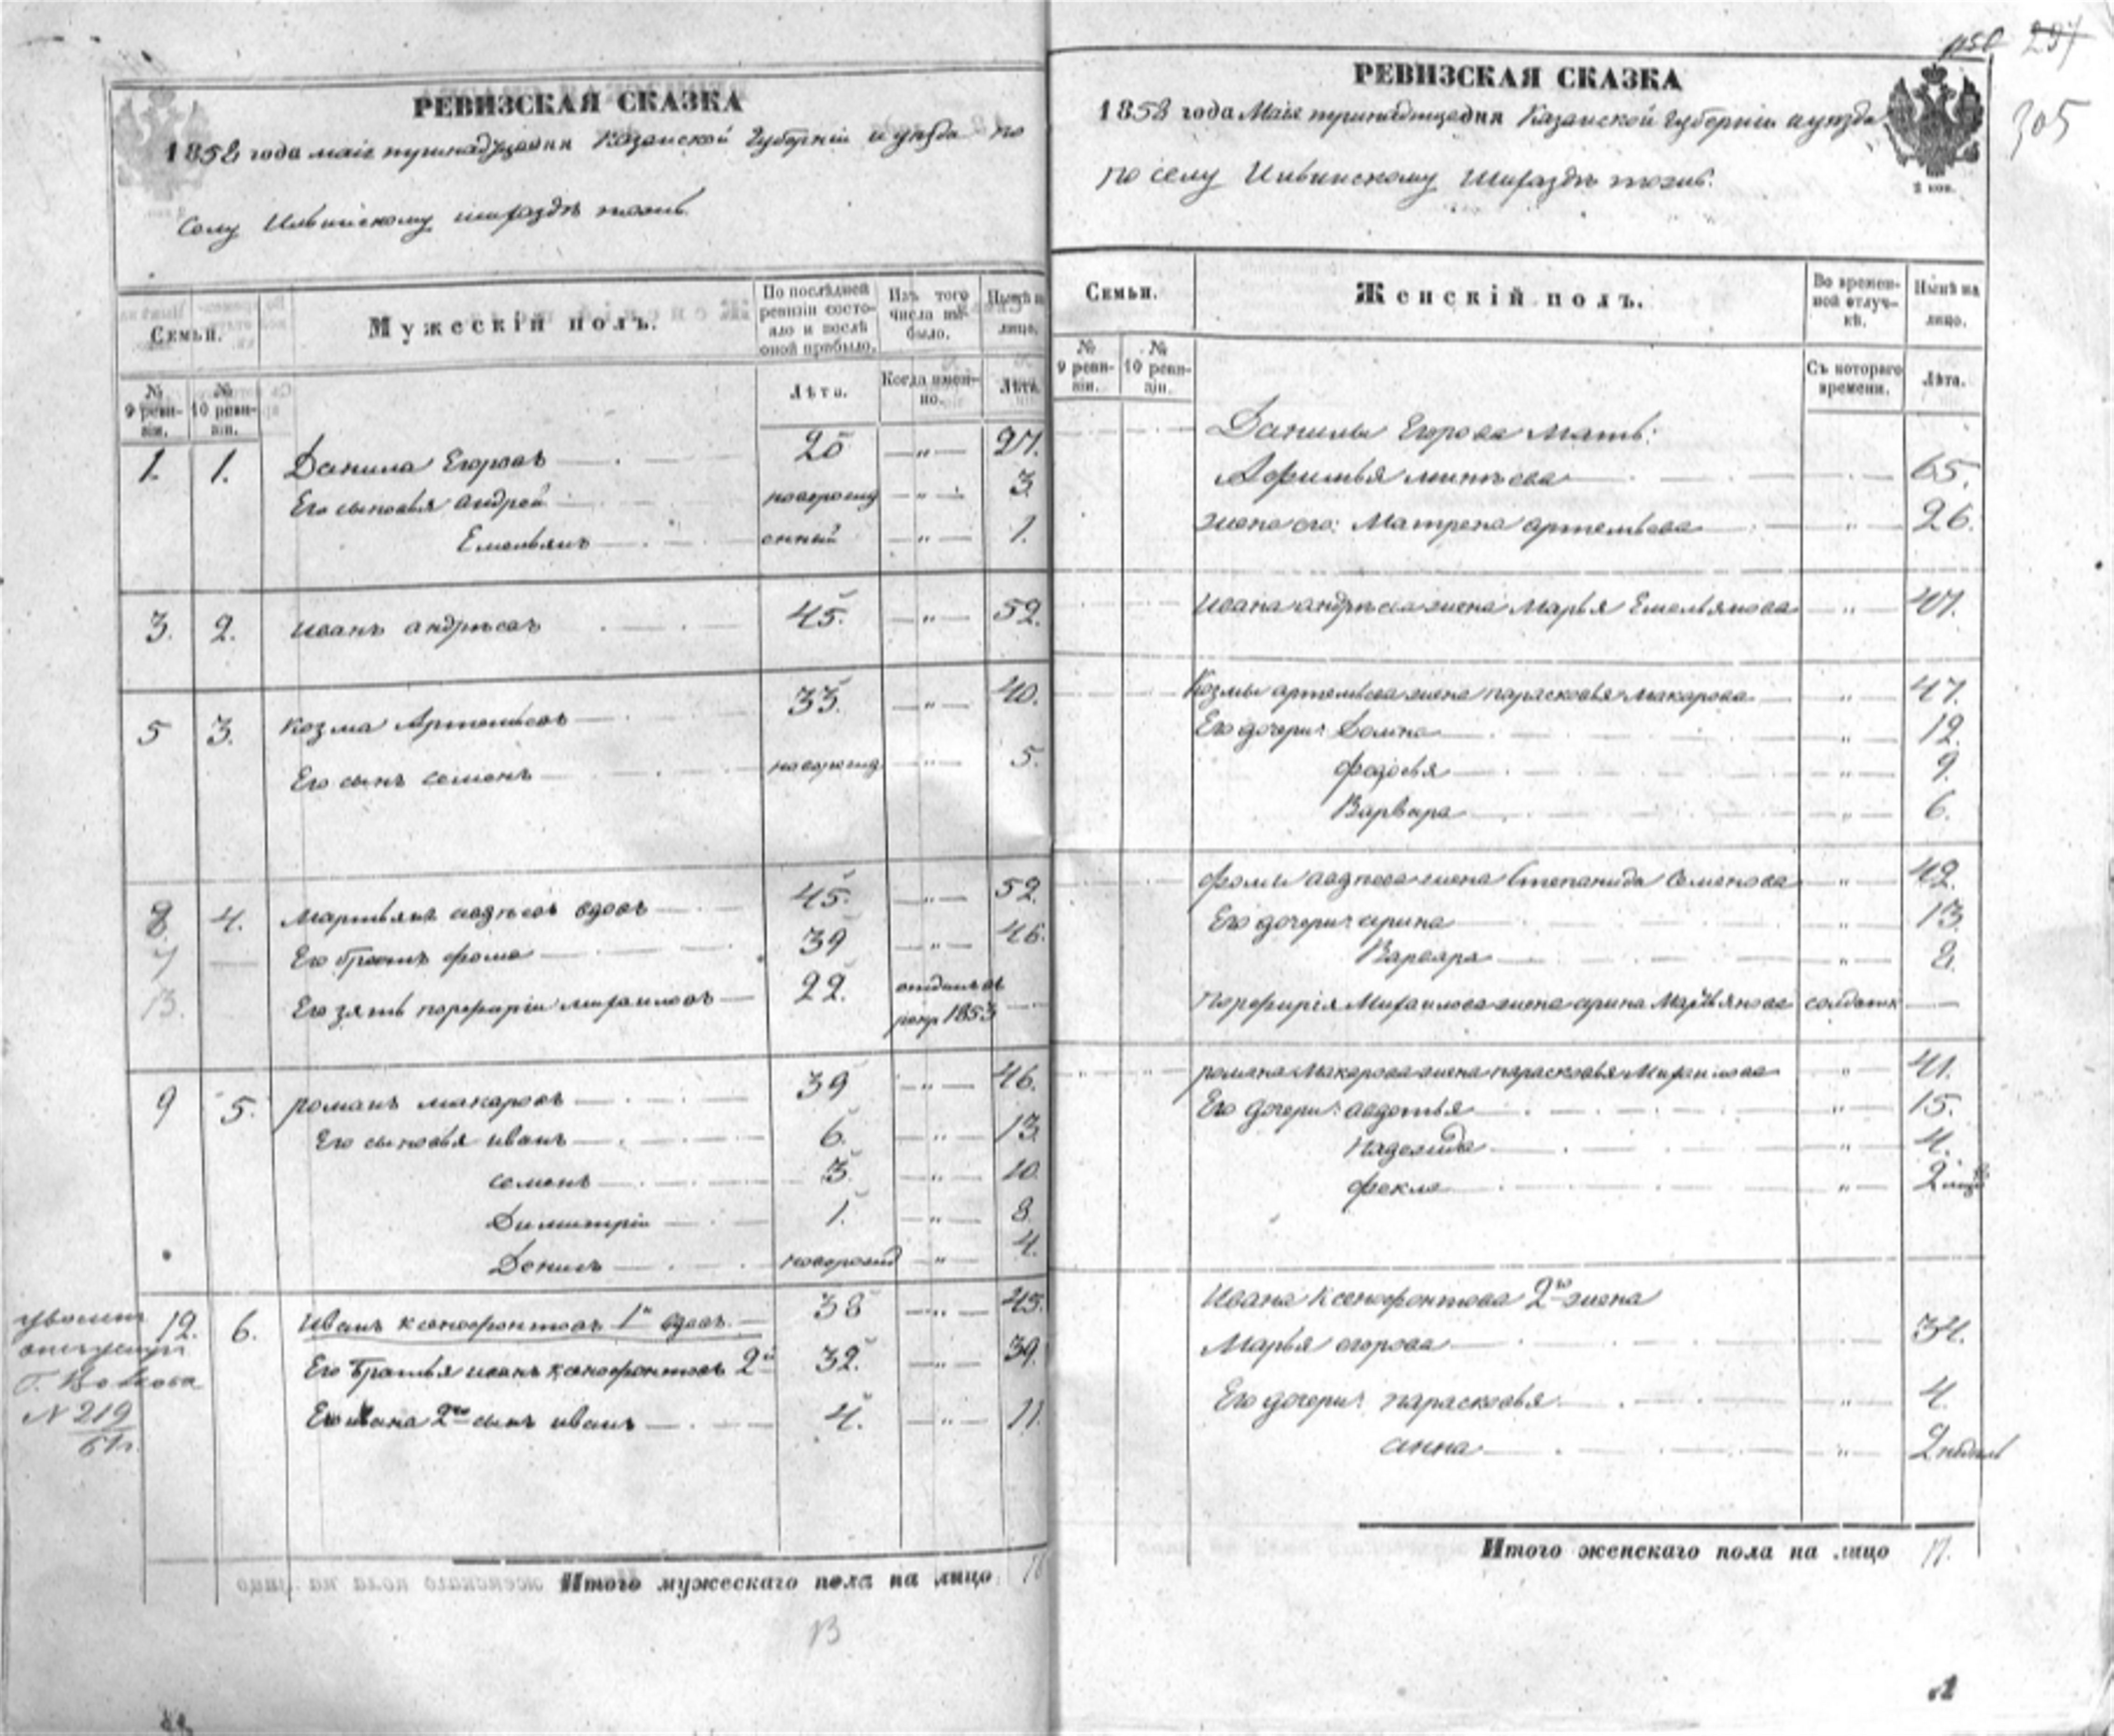 РЕВИЗСКАЯ СКАЗКА
1858 года маія тринадцатаго дня Казанской Губерніи и уѣзда по
селу
Семьи.
Мужескій полъ.
По послѣдней ревизіи состояло и послѣ оной прибыло.
Изъ того числа выбыло.
Нынѣ на лицо.
№ 9 ревизіи.
№ 10 ревизіи.
Лѣта.
Когда именно.
Лѣта.
1. 1. Данила Егоровъ 20 — „ — 27.
Его сыновья андрей новорожд — „ — 3.
Емельянъ енный — „ — 1.
3. 2. Иванъ андрѣевъ 45. — „ — 52.
5 3. Козма Артемьевъ 33. — „ — 40.
Его сынъ семенъ новорожд — „ — 5.
8. 4. Мартьянъ авдѣевъ вдовъ 45. — „ — 52.
7 Его братъ фома 39 — „ — 46.
13. Его зять порфирій михайловъ 22. отданъ въ
рекр 1853
9 5. романъ макаровъ 39 — „ — 46.
Его сыновья иванъ 6. — „ — 13.
семенъ 3. — „ — 10.
Димитрій 1. — „ — 8.
Денисъ новорожд „ — 4.
12. 6. Иванъ ксенофонтовъ 1й вдовъ. 38 — „ — 45.
Его братья иванъ ксенофонтовъ 2й 32. — „ — 39.
Его ивана 2го сынъ иванъ 4. — „ — 11.
N 219
61г.
Итого мужескаго пола на лицо
РЕВИЗСКАЯ СКАЗКА
1858 года Маія тринадцатаго дня Казанской Губерніи и уѣзда
по селу
2 коп.
297
305
Семьи.
Женскій полъ.
Во временной отлучкѣ.
Нынѣ на лицо.
№ 9 ревизіи.
№ 10 ревизіи.
Съ котораго времени.
Лѣта.
Данилы Егорова мать:
Афимья 65.
жена его: Матрена артемьева — „ — 26.
Ивана андрѣева жена Марья Емельянова — „ — 47.
Козмы артемьева жена парасковья Макарова — „ — 47.
Его дочери: Домна — „ — 12.
федосья — „ — 9.
Варвара — „ — 6.
фомы авдѣева жена Степанида Семенова — „ — 42.
Его дочери: ирина — „ — 13.
Варвара — „ — 2.
Порфирія Михайлова жена ирина Мартьянова солдатк —
романа Макарова жена парасковья Михайлова — „ — 41.
Его дочери: авдотья — „ — 15.
Надежда — „ — 4.
фекла — „ — 2
Ивана Ксенофонтова 2го жена
Марья егорова 34.
Его дочери: парасковья „ — 4.
анна „ — 2 недѣль
Итого женскаго пола на лицо 17.